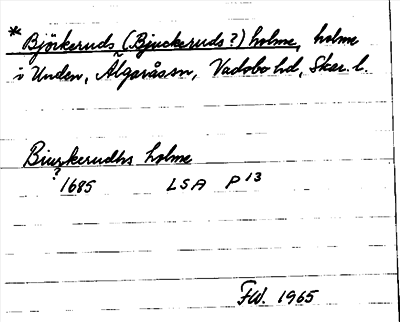 * Björkeruds (Bjuckeruds?) holme, holme
i Unden, Älgaråssn, Vadsbo hd, Skar. l.
Biurkerudhs holme
? 1685 LSA P 13
F.W. 1965